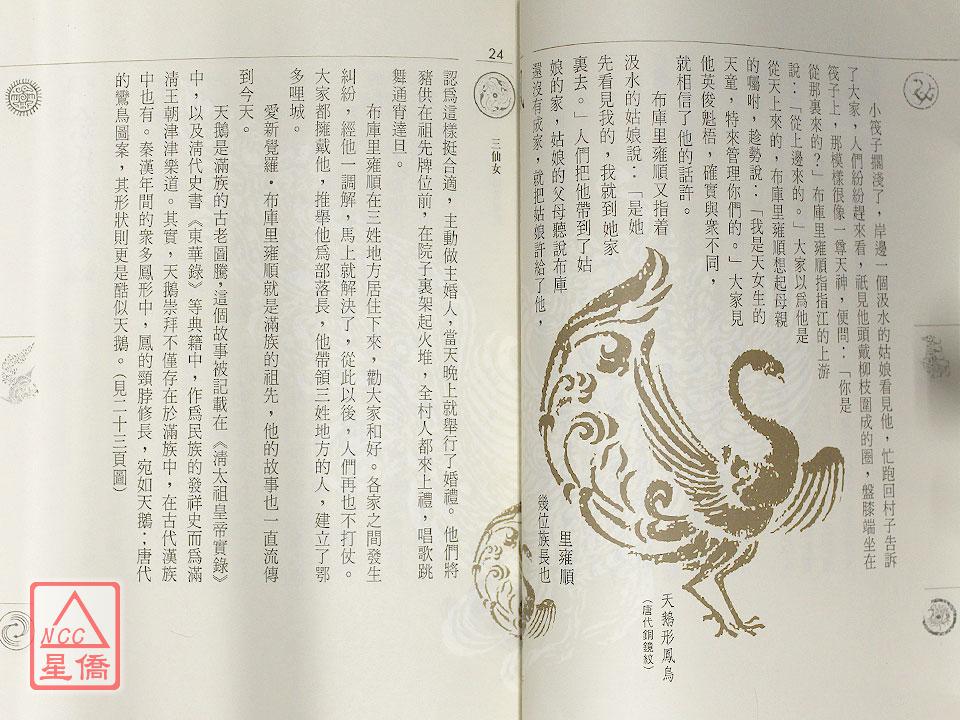 小筏子擱淺了，岸邊一個汲水的姑娘看見他，忙跑回村子告訴
了大家，人們紛紛趕來看，祇見他頭戴柳枝圍成的圈，盤膝端坐在
筏子上，那模樣很像一尊天神，便問：「你是
從那裏來的？」布庫里雍順指指江的上游
說：「從上邊來的。」大家以為他是
從天上來的，布庫里雍順想起母親
的囑咐，趁勢說：「我是天女生的
天童，特來管理你們的。」大家見
他英俊魁梧，確實與衆不同，
就相信了他的話許。
布庫里雍順又指着
汲水的姑娘說：「是她
先看見我的，我就到她家
裏去。」人們把他帶到了姑
娘的家，姑娘的父母聽說布庫
里雍順
還沒有成家，就把姑娘許給了他，
幾位族長也
天鵝形鳳鳥
（唐代銅鏡紋）
24
三仙女
認爲這樣挺合適，主動做主婚人，當天晚上就舉行了婚禮。他們將
豬供在祖先牌位前，在院子裏架起火堆，全村人都來上禮，唱歌跳
舞通宵達旦。
布庫里雍順在三姓地方居住下來，勸大家和好。各家之間發生
糾紛，經他一調解，馬上就解決了，從此以後，人們再也不打仗。
大家都擁戴他，推舉他爲部落長，他帶領三姓地方的人，建立了鄂
多哩城。
愛新覺羅·布庫里雍順就是滿族的祖先，他的故事也一直流傳
到今天。
天鵝是滿族的古老圖騰，這個故事被記載在《清太祖皇帝實錄》
中，以及清代史書《東華錄》等典籍中，作爲民族的發祥史而爲滿
清王朝津津樂道。其實，天鵝崇拜不僅存在於滿族中，在古代漢族
中也有。秦漢年間的衆多鳳形中，鳳的頸脖修長，宛如天鵝；唐代
的鸞鳥圖案，其形狀則更是酷似天鵝。（見二十三頁圖）
NCC
星僑